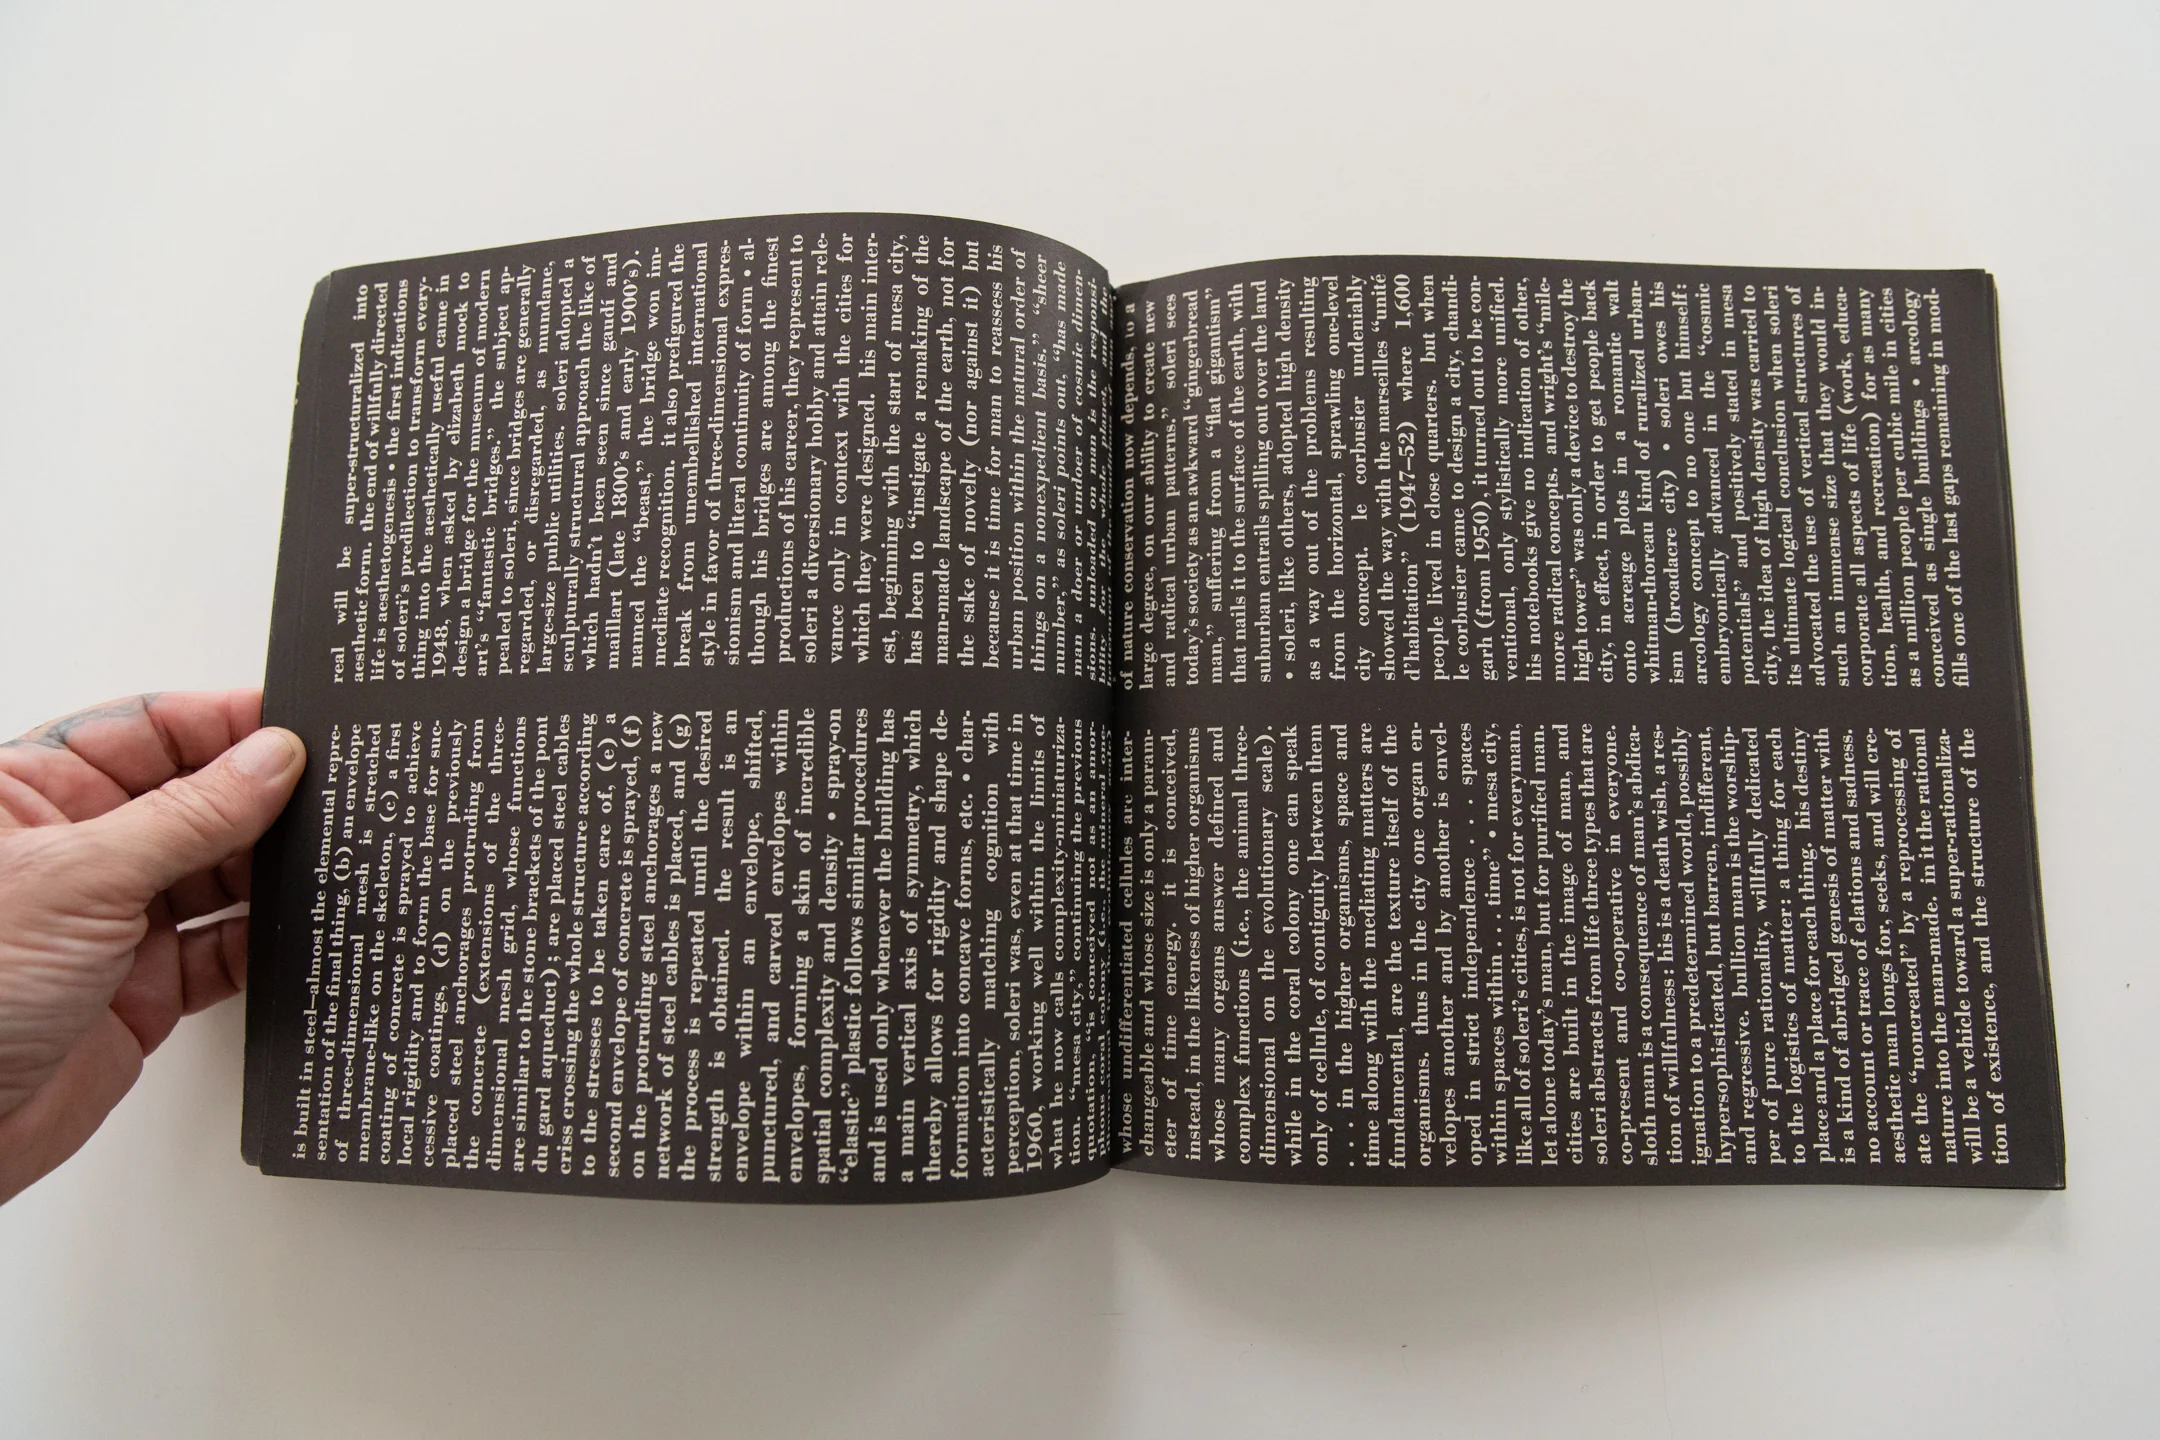 is built in steel—almost the elemental repre-
sentation of the final thing, (b) an envelope
of three-dimensional mesh is stretched
membrane-like on the skeleton, (c) a first
coating of concrete is sprayed to achieve
local rigidity and to form the base for suc-
cessive coatings, (d) on the previously
placed steel anchorages protruding from
the concrete (extensions of the three-
dimensional mesh grid, whose functions
are similar to the stone brackets of the pont
du gard aqueduct); are placed steel cables
criss crossing the whole structure according
to the stresses to be taken care of, (e) a
second envelope of concrete is sprayed, (f)
on the protruding steel anchorages a new
network of steel cables is placed, and (g)
the process is repeated until the desired
strength is obtained. the result is an
envelope within an envelope, shifted,
punctured, and carved envelopes within
envelopes, forming a skin of incredible
spatial complexity and density • spray-on
“elastic” plastic follows similar procedures
and is used only whenever the building has
a man vertical axis of symmetry, which
thereby allows for rigidity and shape de-
formation into concave forms, etc. • char-
acteristically matching cognition with
perception, soleri was, even at that time in
1960, working well within the limits of
what he now calls complexity-miniaturiza-
tion. “mesa city,” continuing the previous
quotation, “is conceived no as an amor-
phous coral colony (i.e., the mineral ones)
whose undifferentiated cellules are inter-
changeable and whose size is only a param-
eter of time energy. it is conceived,
instead, in the likeness of higher organisms
whose many organs answer defined and
complex functions (i.e., the animal three-
dimensional on the evolutionary scale).
while in the coral colony one can speak
only of cellule, of contiguity between them
. . . . in the higher organisms, space and
time along with the mediating matters are
fundamental, are the texture itself of the
organisms. thus in the city one organ en-
velopes another and by another is envel-
oped in strict independence . . . . spaces
within spaces within . . . . time” • mesa city,
like all of soleri’s cities, is not for everyman,
let alone today’s man, but for purified man.
cities are built in the image of man, and
soleri abstracts from life three types that are
co-present and co-operative in everyone.
sloth man is a consequence of man’s abdica-
tion of willfulness: his is a death wish, a res-
ignation to a predetermined world, possibly
hypersophisticated, but barren, indifferent,
and regressive. bullion man is the worship-
per of pure rationality, willfully dedicated
to the logistics of matter: a thing for each
place and a place for each thing. his destiny
is a kind of abridged genesis of matter with
no account or trace of elations and sadness.
aesthetic man longs for, seeks, and will cre-
ate the “noncreated” by a reprocessing of
nature into the man-made. in it the rational
will be a vehicle toward a super-rationaliza-
tion of existence, and the structure of the
real will be super-structuralized into
aesthetic form. the end of willfully directed
life is aesthetogenesis • the first indications
of soleri’s predilection to transform every-
thing into the aesthetically useful came in
1948, when asked by elizabeth mock to
design a bridge for the museum of modern
art’s “fantastic bridges.” the subject ap-
pealed to soleri, since bridges are generally
regarded, or disregarded, as mundane,
large-size public utilities. soleri adopted a
sculpturally structural approach the like of
which hadn’t been seen since gaudí and
maillart (late 1800’s and early 1900’s).
named the “beast,” the bridge won im-
mediate recognition. it also prefigured the
break from unembellished international
style in favor of three-dimensional expres-
sionism and literal continuity of form • al-
though his bridges are among the finest
productions of his career, they represent to
soleri a diversionary hobby and attain rele-
vance only in context with the cities for
which they were designed. his main inter-
est, beginning with the start of mesa city,
has been to “instigate a remaking of the
man-made landscape of the earth, not for
the sake of novelty (nor against it) but
because it is time for man to reassess his
urban position within the natural order of
things on a nonexpedient basis.” “sheer
number,” as soleri points out, “has made
man a doer or undoer of cosmic dimen-
sions. unloaded on man is the responsi-
bility for the whole planet, and the
of nature conservation now depends, to a
large degree, on our ability to create new
and radical urban patterns.” soleri sees
today’s society as an awkward “gingerbread
man,” suffering from a “flat gigantism”
that nails it to the surface of the earth, with
suburban entrails spilling out over the land
• soleri, like others, adopted high density
as a way out of the problems resulting
from the horizontal, sprawling one-level
city concept. le corbusier undeniably
showed the way with the marseilles “unité
d’habitation,” (1947–52) where 1,600
people lived in close quarters. but when
le corbusier came to design a city, chandi-
garh (from 1950), it turned out to be con-
ventional, only stylistically more unified.
his notebooks give no indication of other,
more radical concepts. and wright’s “mile-
high tower” was only a device to destroy the
city, in effect, in order to get people back
onto acreage plots in a romantic walt
whitman-thoreau kind of ruralized urban-
ism (broadacre city) • soleri owes his
arcology concept to no one but himself:
embryonically advanced in the “cosmic
potentials” and positively stated in mesa
city, the idea of high density was carried to
its ultimate logical conclusion when soleri
advocated the use of vertical structures of
such an immense size that they would in-
corporate all aspects of life (work, educa-
tion, health, and recreation) for as many
as a million people per cubic mile in cities
conceived as single buildings • arcology
fills one of the last gaps remaining in mod-